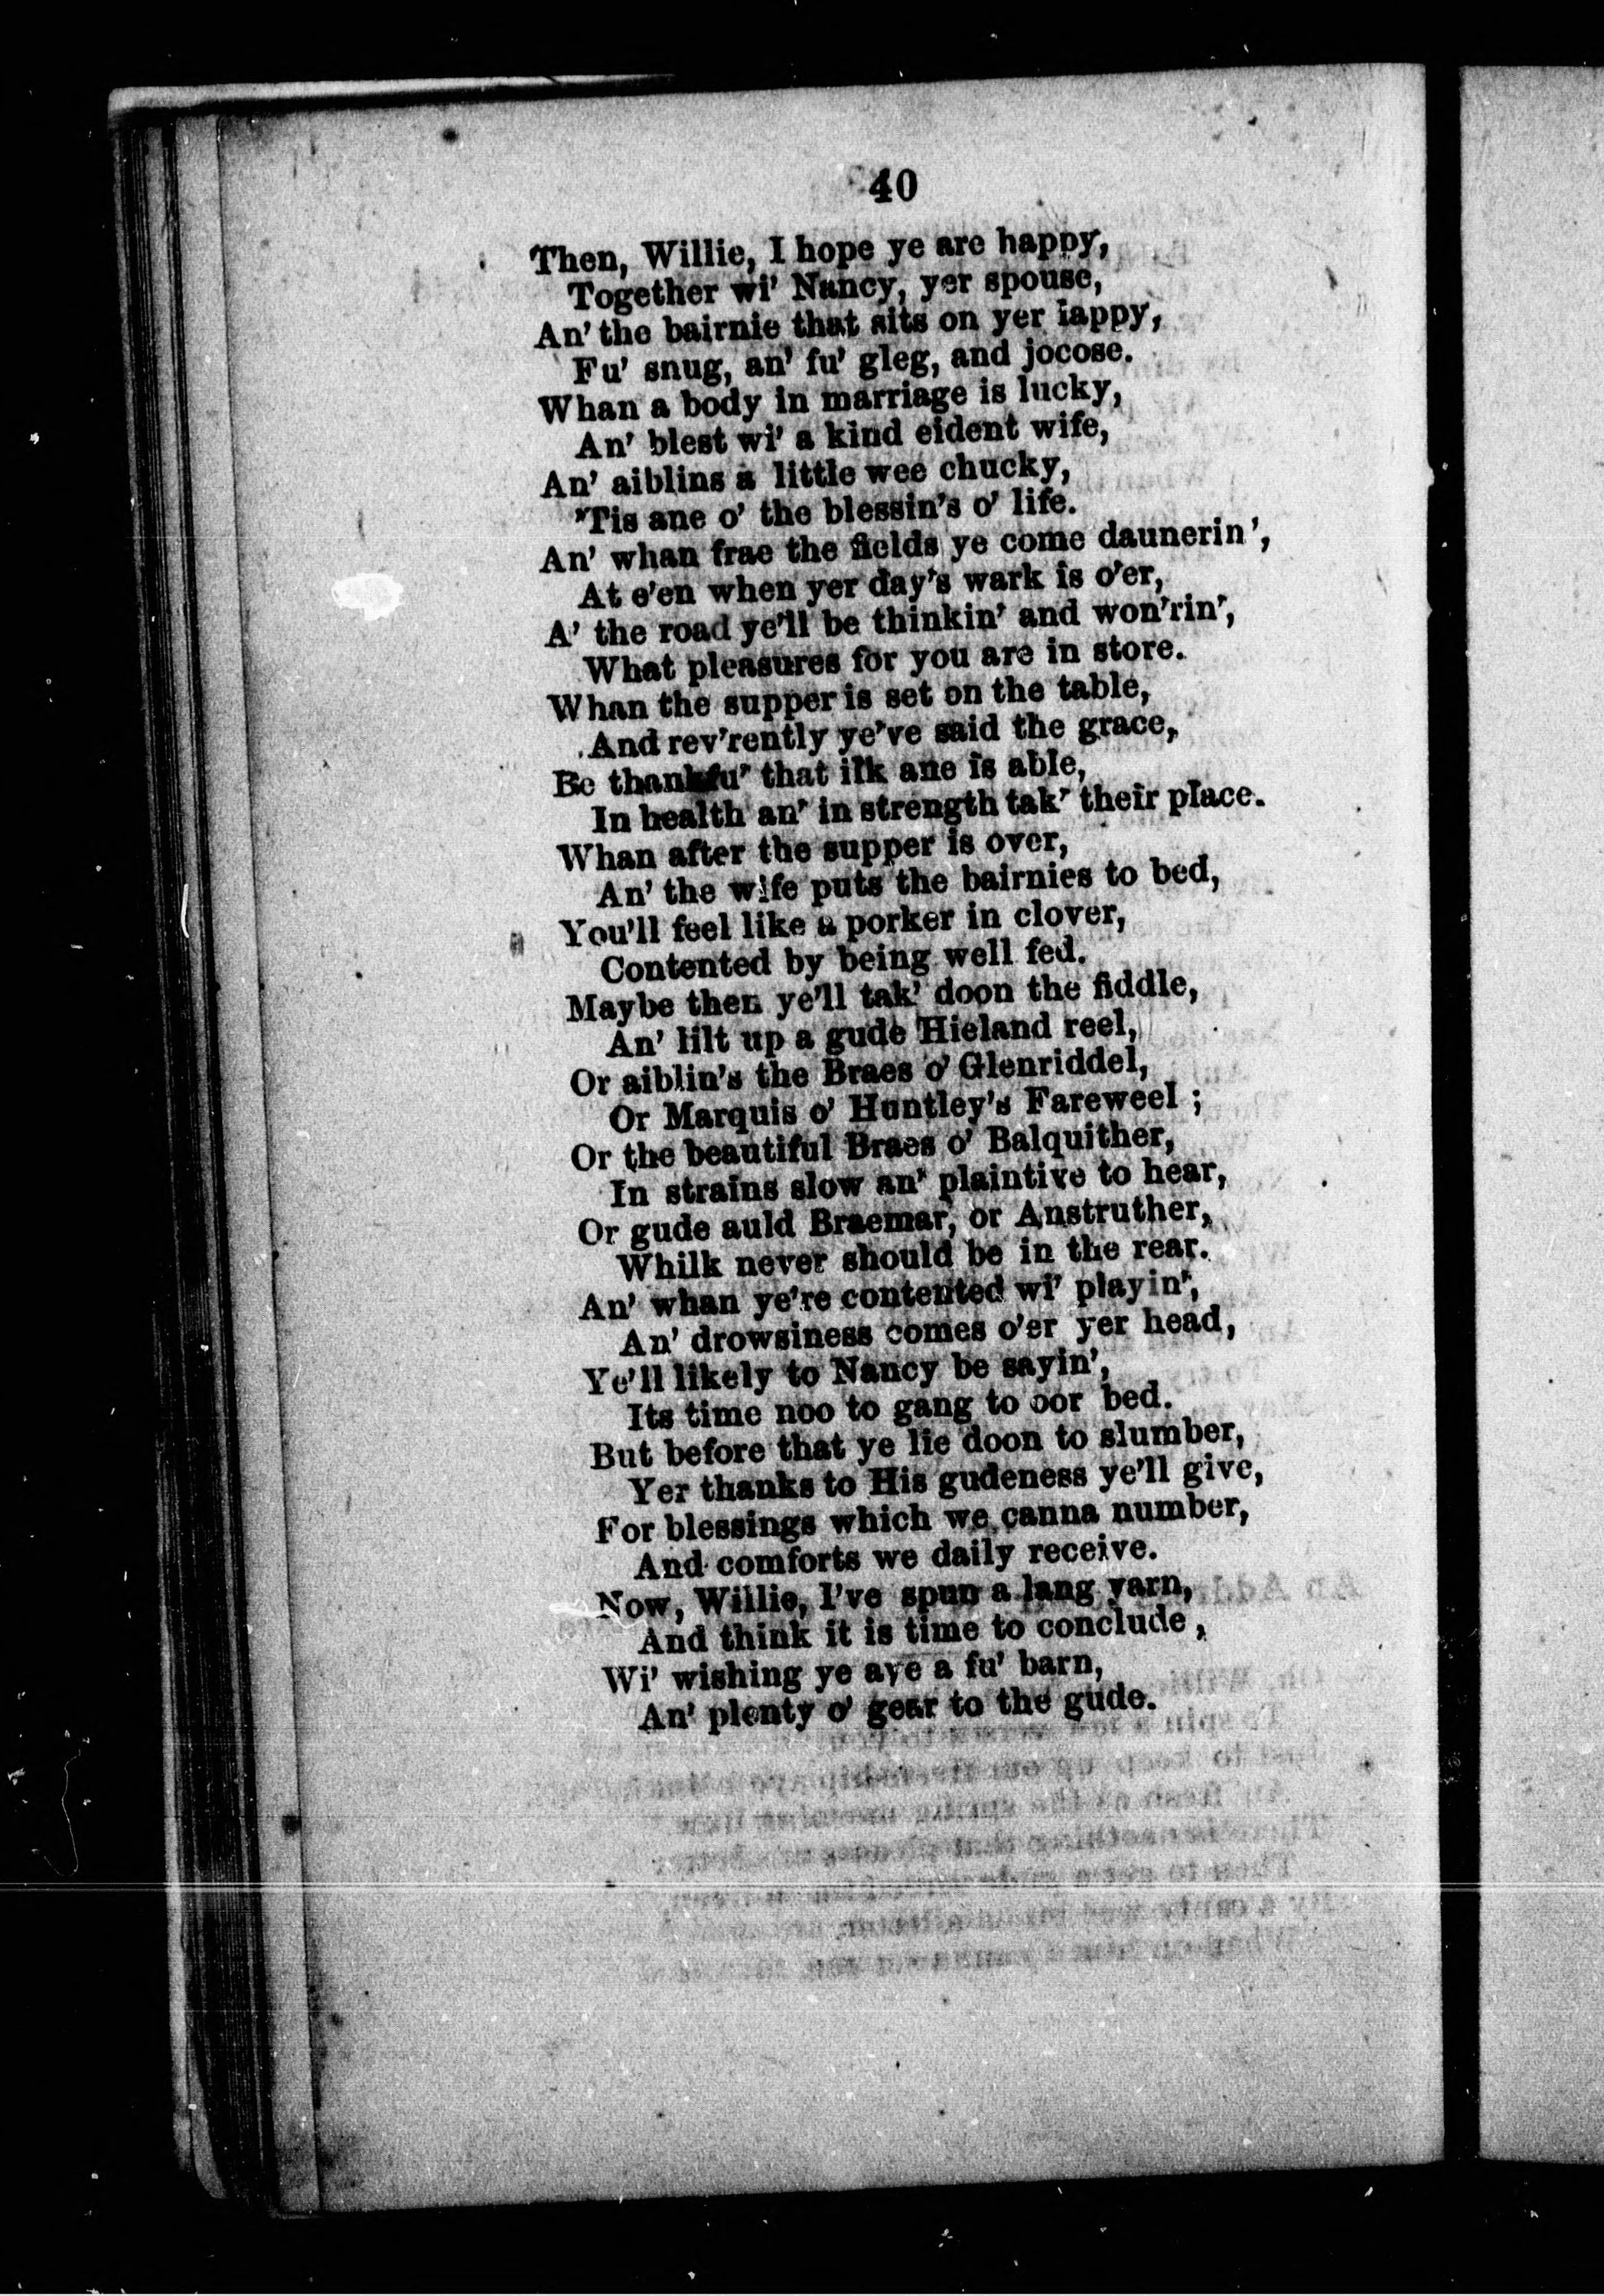 40
Then, Willie, I hope ye are happy,
Together wi' Nancy, yer spouse,
An' the bairnie that sits on yer lappy,
Fu' snug, an' fu' gleg, and jocose.
Whan a body in marriage is lucky,
An' blest wi' a kind eident wife,
An' aiblins a little wee chucky,
'Tis ane o' the blessin's o' life.
An' whan frae the fields ye come daunerin',
At e'en when yer day's wark is o'er,
A' the road ye'll be thinkin' and won'rin',
What pleasures for you are in store.
Whan the supper is set on the table,
And rev'rently ye've said the grace,
Be thankfu' that ilk ane is able,
In health an' in strength tak' their place.
Whan after the supper is over,
An' the wife puts the bairnies to bed,
You'll feel like a porker in clover,
Contented by being well fed.
Maybe then ye'll tak' doon the fiddle,
An' lilt up a gude Hieland reel,
Or aiblin's the Braes o' Glenriddel,
Or Marquis o' Huntley's Fareweel ;
Or the beautiful Braes o' Balquither,
In strains slow an' plaintive to hear,
Or gude auld Braemar, or Anstruther,
Whilk never should be in the rear.
An' whan ye're contented wi' playin',
An' drowsiness comes o'er yer head,
Ye'll likely to Nancy be sayin',
Its time noo to gang to oor bed.
But before that ye lie doon to slumber,
Yer thanks to His gudeness ye'll give,
For blessings which we canna number,
And comforts we daily receive.
Now, Willie, I've spun a lang yarn,
And think it is time to conclude,
Wi' wishing ye aye a fu' barn,
An' plenty o' gear to the gude.